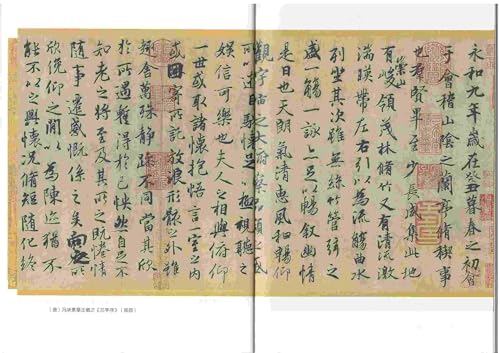 永和九年歲在癸丑暮春之初會
于會稽山陰之蘭亭脩稧事
也群賢畢至少長咸集此地
有崇山峻領茂林脩竹又有清流激
湍暎帶左右引以為流觴曲水
列坐其次雖無絲竹管弦之
盛一觴一詠亦足以暢敘幽情
是日也天朗氣清惠風和暢仰
觀宇宙之大俯察品類之盛
所以遊目騁懷足以極視聽之
娛信可樂也夫人之相與俯仰
一世或取諸懷抱悟言一室之內
或因寄所託放浪形骸之外雖
趣舍萬殊靜躁不同當其欣
於所遇蹔得於己怏然自足不
知老之將至及其所之既惓情
隨事遷感慨係之矣向之所
欣俛仰之閒以為陳迹猶不
能不以之興懷況脩短隨化終
（唐）冯承素摹王羲之《兰亭序》（局部）